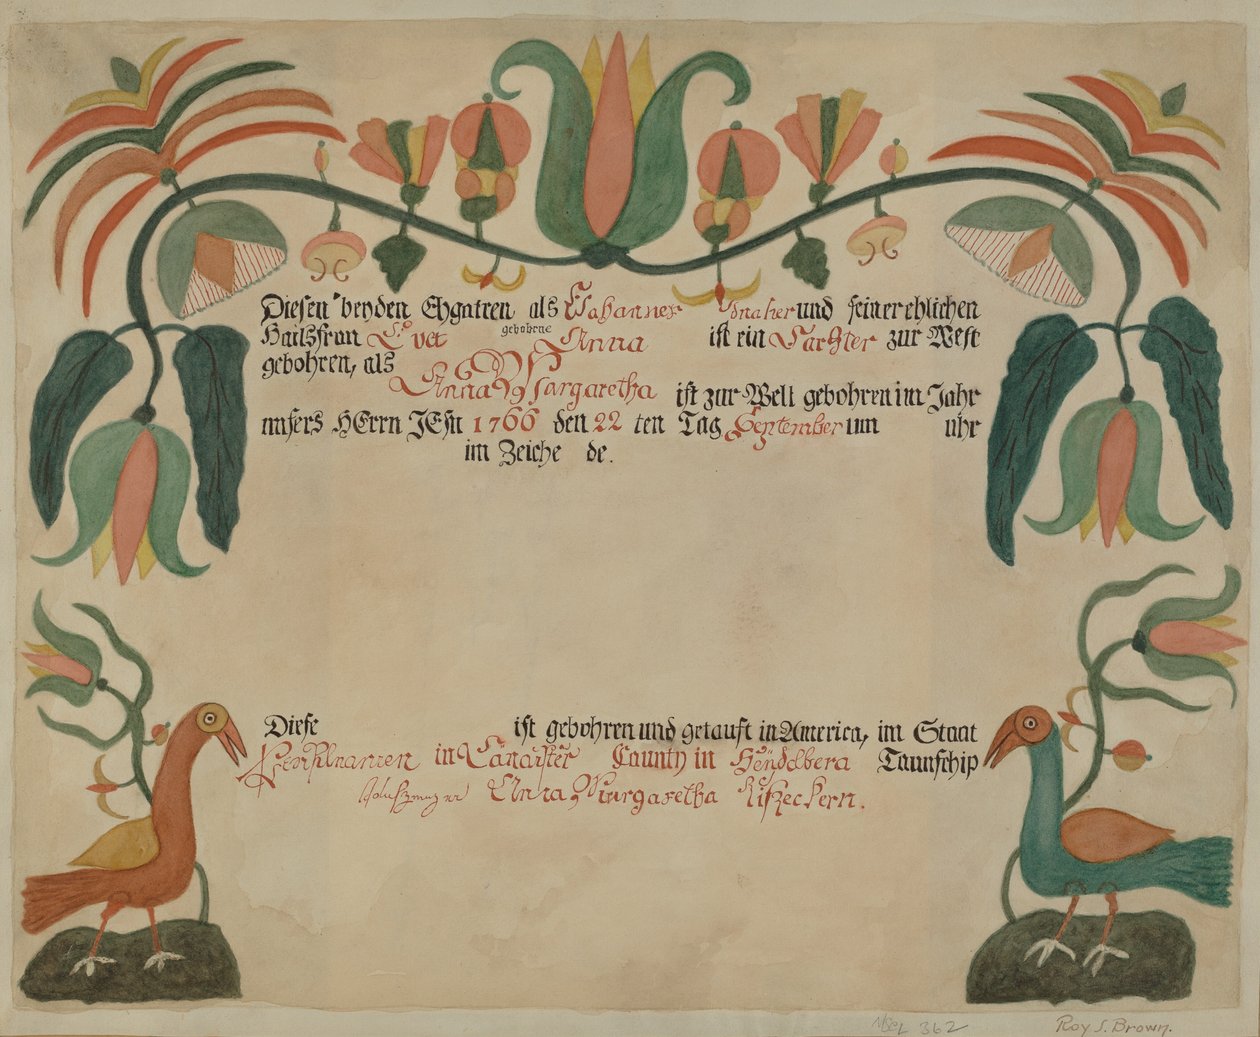 Diesen beyden Ehgatten als Johannes und seiner ehlichen
Haußfrau gebohrne Anna ist ein Tochter zur Welt
gebohren, als
Anna Margaretha ist zur Welt gebohren im Jahr
unsers HErrn JEsu 1766 den 22 ten Tag September um uhr
im Zeiche de.
Diese ist gebohren und getauft in America, im Staat
in County in Taunschip
Anna Margaretha
Roy S. Brown.
362